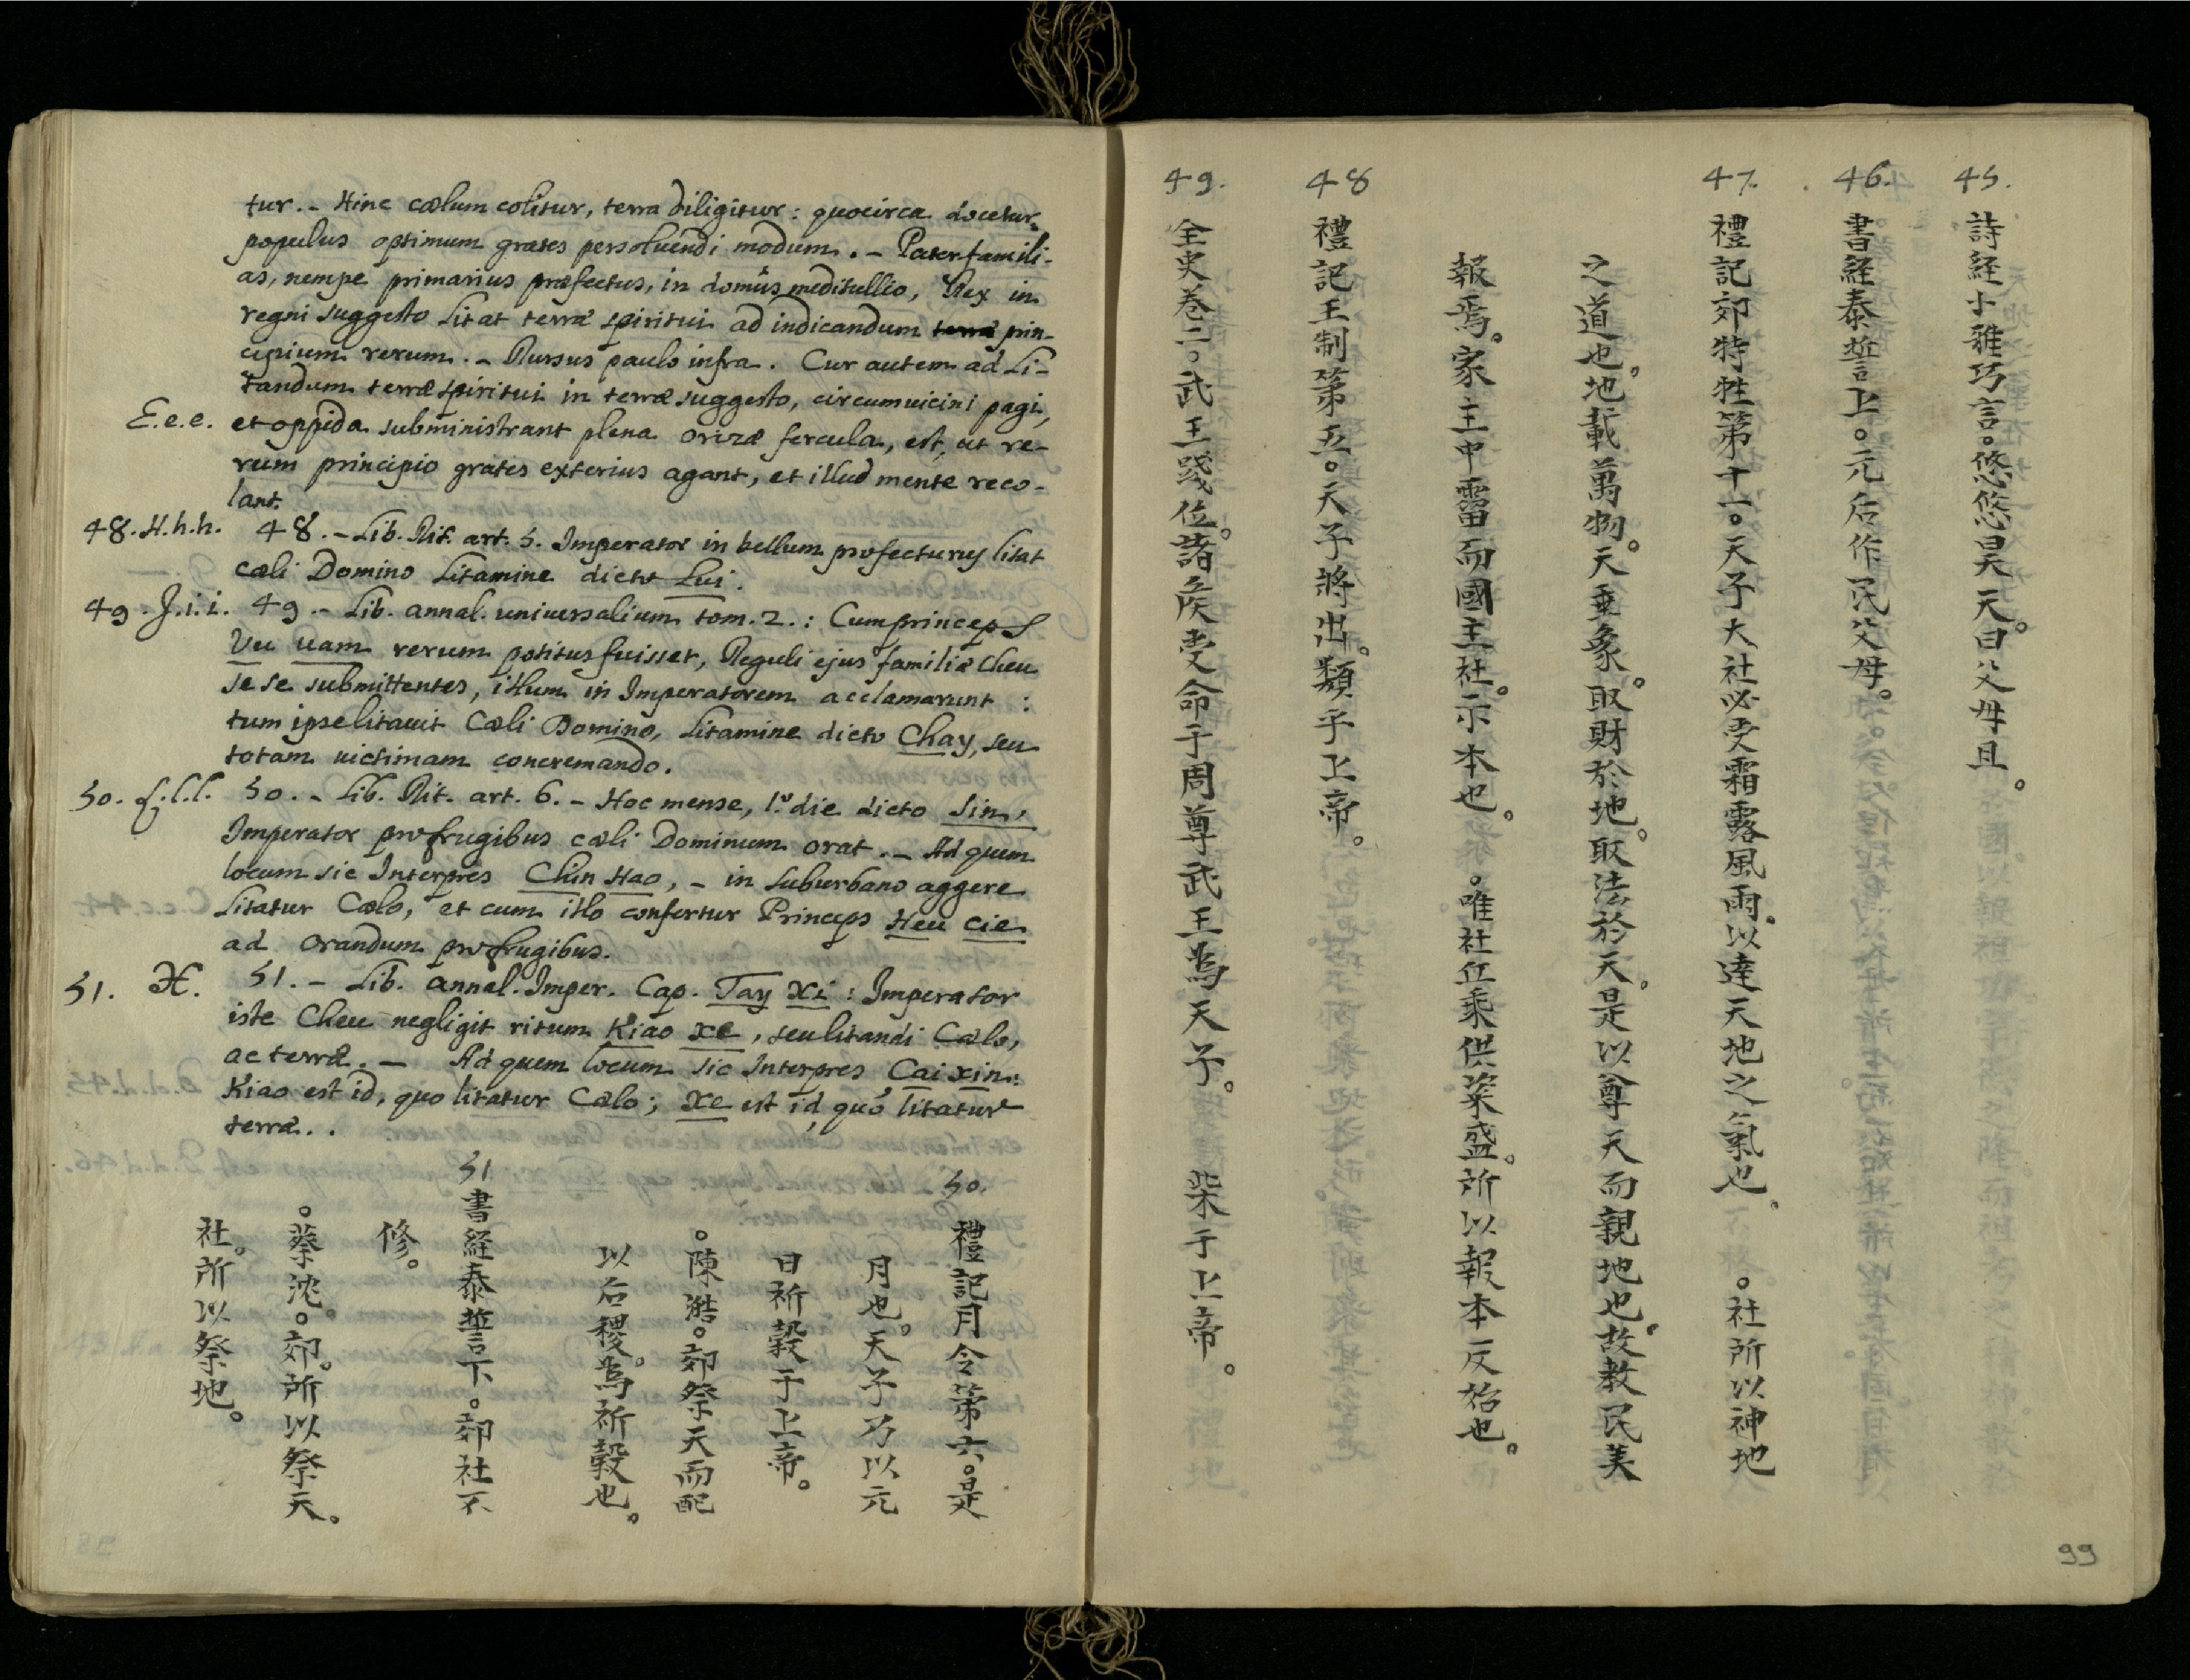 tur. - Hinc cœlum colitur, terra diligitur: quocirca docetur
populus optimum grates persoluendi modum. - Paterfamili-
as, nempe primarius præfectus, in domûs meditullio, Rex in
regni suggesto Litat terræ spiritui ad indicandum terræ prin-
cipium rerum. - Rursus paulo infra. Cur autem ad Li-
tandum terræ spiritui in terræ suggesto, circumuicini pagi,
E.e.e. et oppida subministrant plena orizæ fercula, est, ut re-
rum principio grates exterius agant, et illud mente reco-
lant.
48. H.h.h. 48. - Lib. Rit. art. 5. Imperator in bellum profecturus litat
cœli Domino Litamine dicto Lui.
49. J.i.i. 49. - Lib. annal. uniuersalium tom. 2.: Cum princeps
Vu uam rerum potitus fuisset, Reguli ejus familiæ Cheu
se se submittentes, illum in Imperatorem acclamarunt :
tum ipse litauit Cœli Domino, Litamine dicto Chay, seu
totam uictimam concremando.
50. L.l.l. 50. - Lib. Rit. art. 6. - Hoc mense, 1.º die dicto Sin,
Imperator pro frugibus cœli Dominum orat. - Ad quem
locum sic Interpres Chin Hao, - in suburbano aggere
Litatur Cœlo, et cum illo confertur Princeps Heu cie
ad orandum pro frugibus.
51. H. 51. - Lib. annal. Imper. Cap. Tay Xi : Imperator
iste Cheu negligit ritum Kiao xe, seu litandi Cœlo,
ac terræ. - Ad quem locum sic Interpres Cai xin:
Kiao est id, quo litatur Cœlo; xe est id, quo litatur
terræ..
50. 禮記月令第六。是
月也。天子乃以元
日祈穀于上帝。
。陳澔。郊祭天而配
以后稷。爲祈穀也。
51 書経泰誓下。郊社不
修。
。蔡沈。郊。所以祭天。
社。所以祭地。
45. 詩経小雅巧言。悠悠昊天。曰父母且。
46. 書経泰誓上。元后作民父母。
47. 禮記郊特牲第十一。天子大社必受霜露風雨。以達天地之氣也。 。社所以神地
之道也。地載萬物。天垂象。取財於地。取法於天。是以尊天而親地也。故教民美
報焉。家主中霤而國主社。示本也。 。唯社丘乘供粢盛。所以報本反始也。
48 禮記王制第五。天子將出。類乎上帝。
49. 全史巻二。武王踐位。諸侯受命于周尊武王爲天子。 柴于上帝。
99